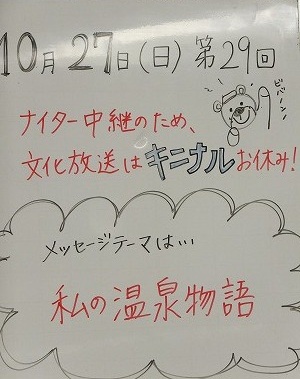 10月27日(日)第29回
ナイター中継のため、
ビバノン
文化放送はキニナルお休み!
メッセージテーマは…
私の温泉物語